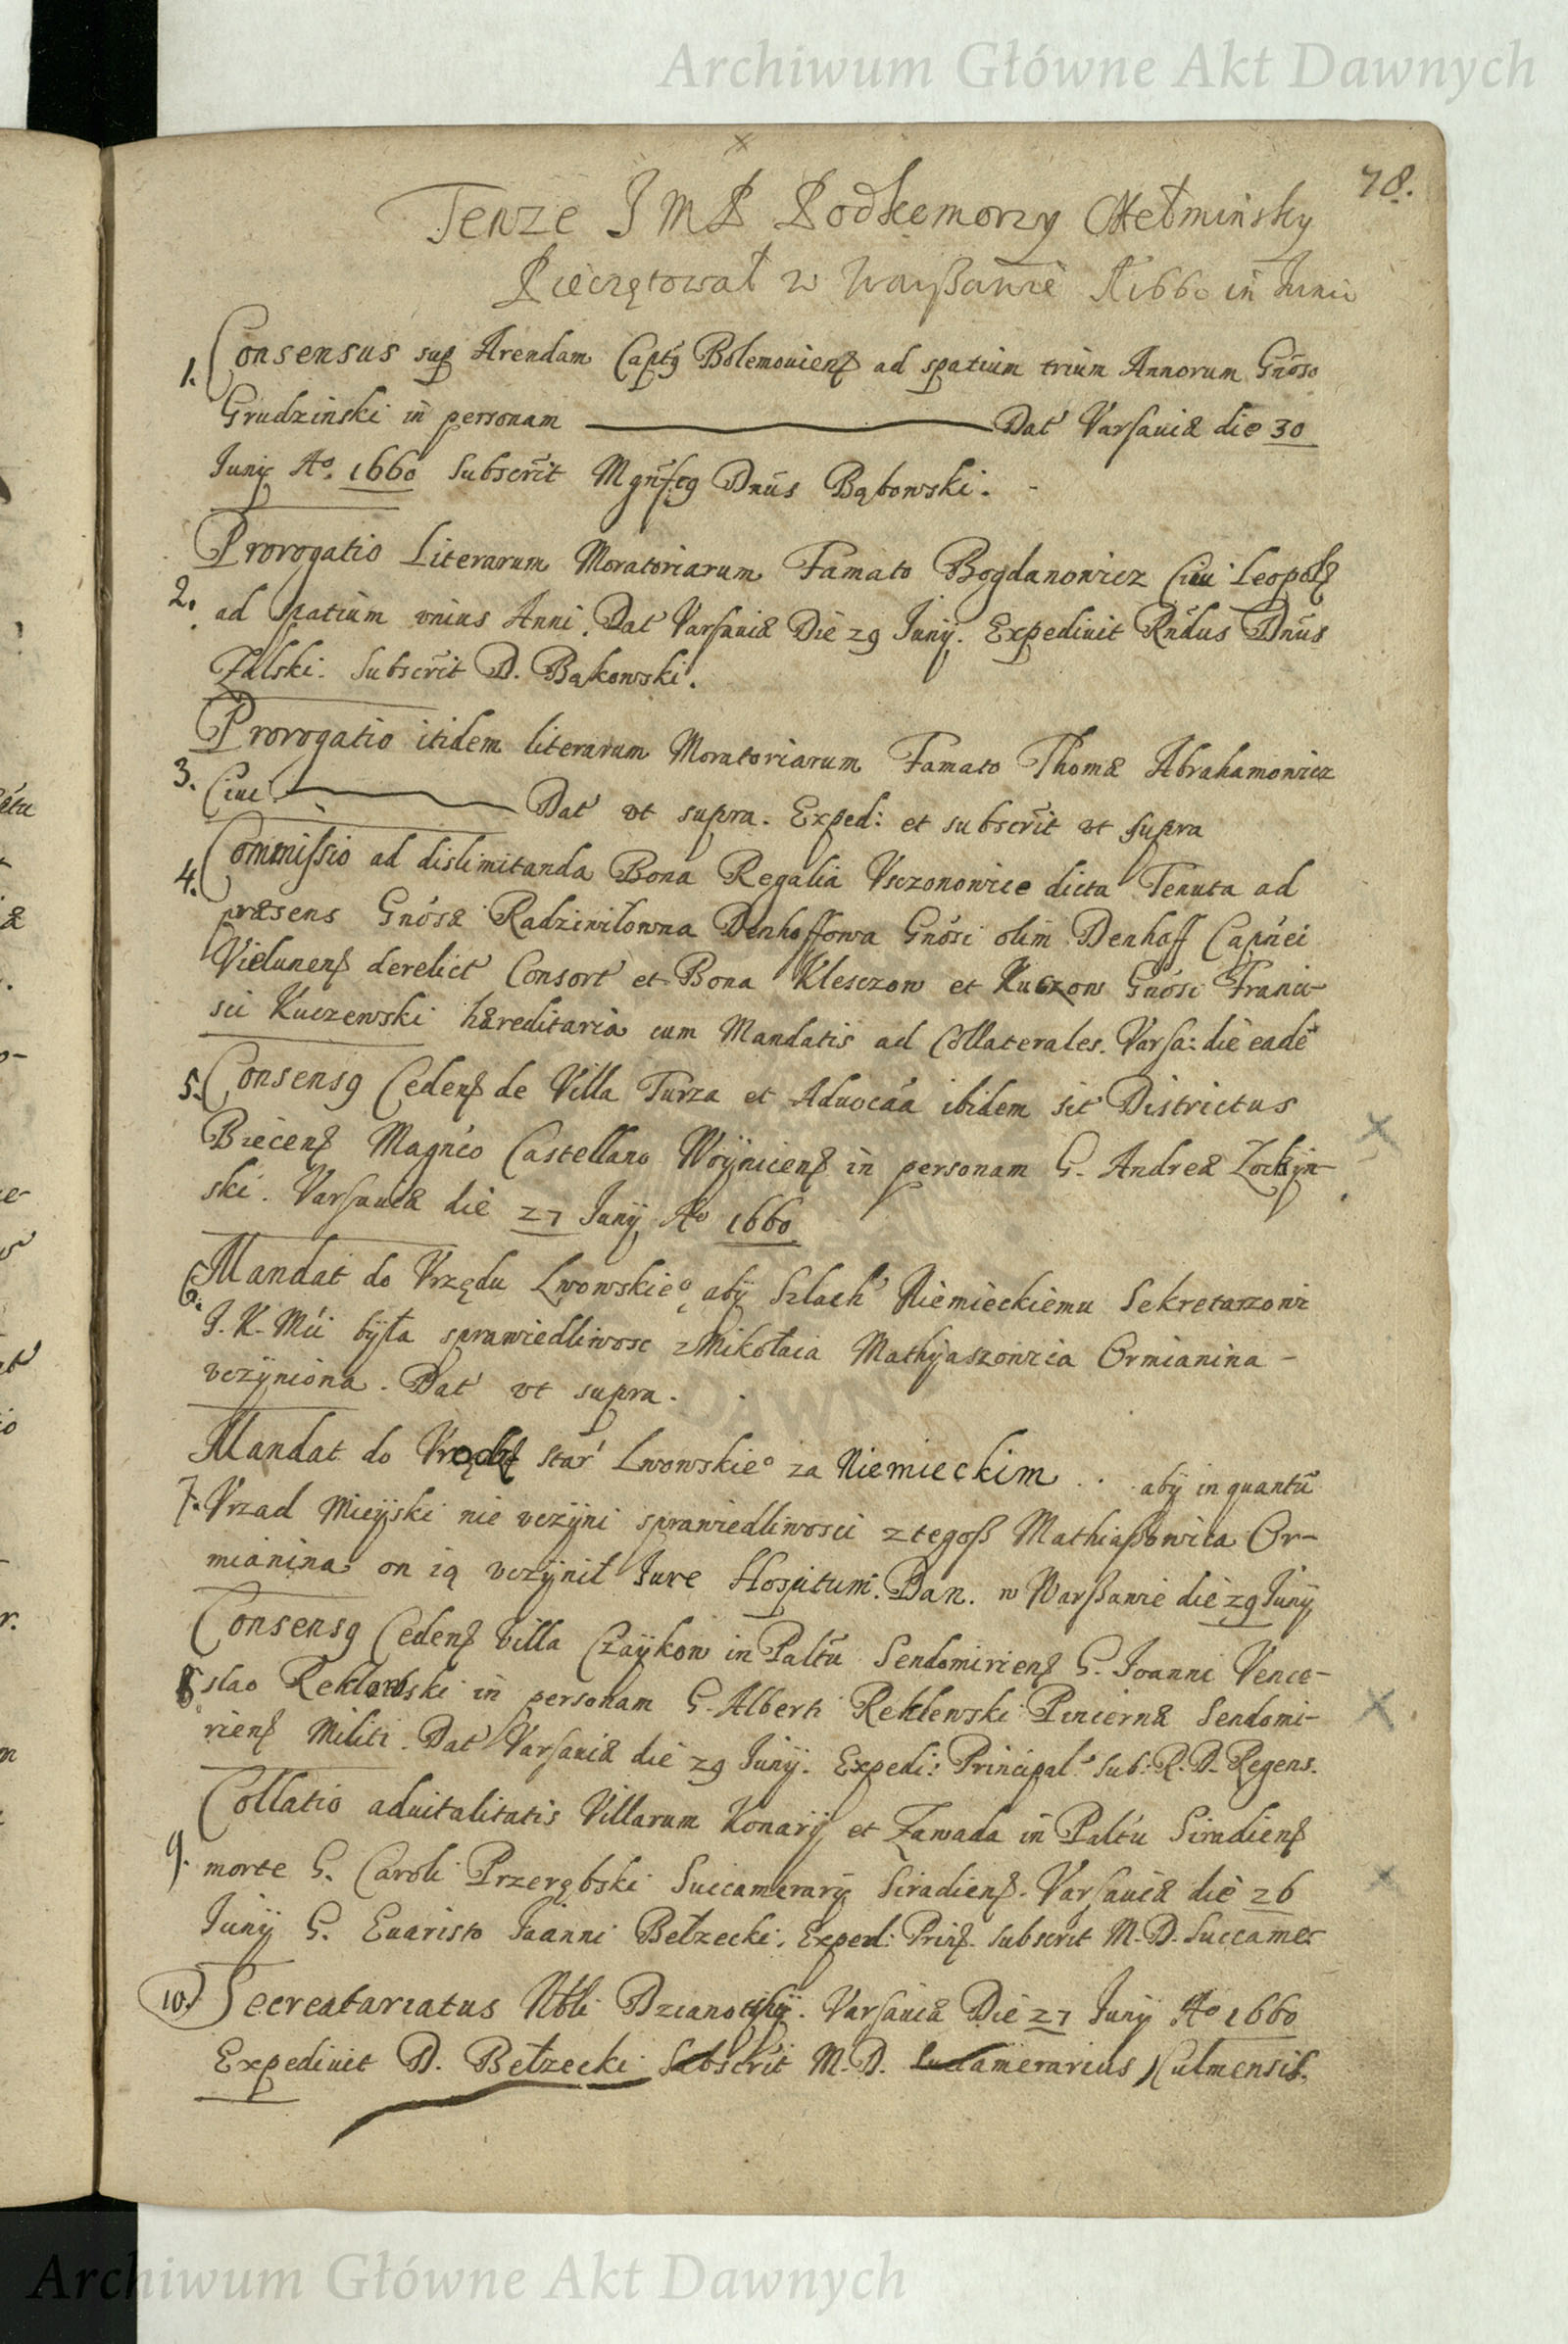 Archiwum Główne Akt Dawnych
78.
Tenze J M P Podkomorzy Chełminsky
Pieczętował w Warszawie A 1660 in Junio
1. Consensus sup Arendam Capts Bolemouiens ad spatium trium Annorum Gnoso
Grudzinski in personam Dat Varsauiæ die 30
Junij Ao. 1660 Subscrit Mgnfcus Dnus Bąkowski.
Prorogatio Literarum Moratoriarum Famato Bogdanowicz Ciui Leopols
2. ad spatium vnius Anni. Dat Varsauiæ Die 29 Junij. Expediuit Rndus Dnus
Zalski. Subscrit D. Bąkowski.
Prorogatio itidem literarum Moratoriarum Famato Thomæ Abrahamowicz
3. Ciui Dat vt supra. Exped: et subscrit vt supra
4. Commissio ad dislimitanda Bona Regalia Vsczonowice dicta Tenuta ad
præsens Gnosæ Radziwiłowna Denhoffowa Gnosi olim Denhoff Capnei
Vielunens derelict Consort et Bona Klesczow et Kuczow Gnosi Franci-
sci Kuczewski hæreditaria cum Mandatis ad Collaterales. Varsa: die eadē
5. Consensus Cedens de Villa Turza et Aduocaa ibidem sit Districtus
Biecens Magnco Castellano Woynicens in personam G. Andreæ
ski. Varsauiæ die 27 Junij Ao 1660
6. Mandat do Vrzędu Lwowskieo aby Szlach Niemieckiemu Sekretarzowi
J. K. Mci była sprawiedliwosc z Mikołaia Mathyaszowica Ormianina -
vczyniona. Dat vt supra.
Mandat do Star Lwowskieo za Niemieckim . . aby in quantū
7. Vrzad Mieyski nie vczyni sprawiedliwosci z tegoß Mathiaßowica Or-
mianina on ią vczynił Jure Hospitum. Dan. w Warßawie die 29 Junij
Consensus Cedens Villa Czaykow in Paltu Sendomiriens G. Joanni Vence-
8 slao Reklewski in personam G. Alberti Reklewski Pincernæ Sendomi-
riens Militi. Dat Varsauiæ die 29 Junij. Expedi: Principal Sub: R. D. Regens.
Collatio aduitalitatis Villarum Konary et Zawada in Paltu Siradiens
9. morte G. Caroli Przerębski Succamerarij Siradiens. Varsauiæ die 26
Junij G. Euaristo Joanni Bełzecki. Exped: Prins. subscrit M. D. Succamer
10. Secreatariatus Nbli. Varsauiæ Die 27 Junij Ao 1660
Expediuit D. Bełzecki Subscrit M. D. Succamerarius Culmensis.
Archiwum Główne Akt Dawnych